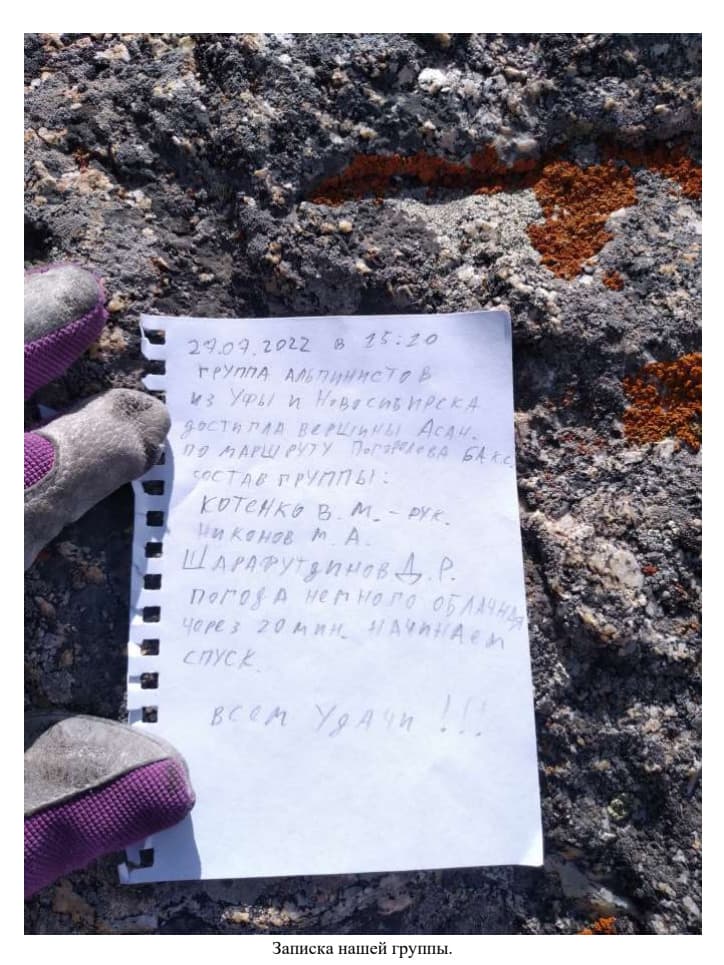 29.07.2022 в 15:20
ГРУППА АЛЬПИНИСТОВ
ИЗ УФЫ И НОВОСИБИРСКА
ДОСТИГЛА ВЕРШИНЫ АСАН.
ПО МАРШРУТУ ПОГОРЕЛОВА 6А к.с.
СОСТАВ ГРУППЫ:
КОТЕНКО В. М. – РУК.
НИКОНОВ М. А.
ШАРАФУТДИНОВ Д. Р.
ПОГОДА НЕМНОГО ОБЛАЧНАЯ
ЧЕРЕЗ 20 МИН. НАЧИНАЕМ
СПУСК.
ВСЕМ УДАЧИ!!!
Записка нашей группы.